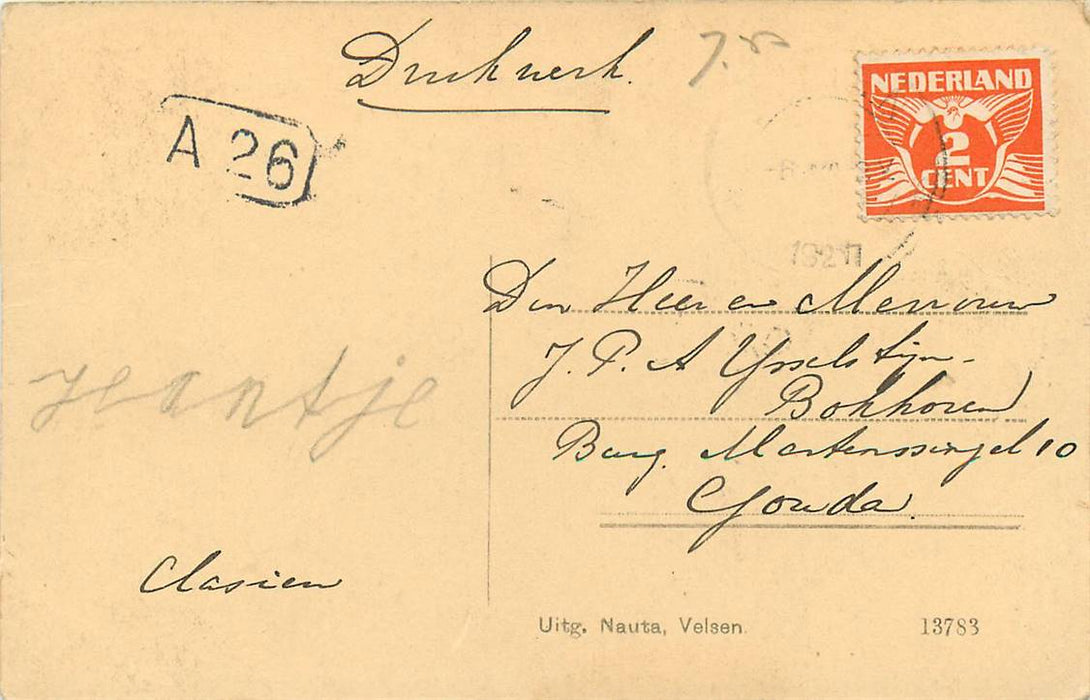 Drukwerk.
7.50
NEDERLAND
2
CENT
A 26
Den Heer en Mevrouw
J. P. A Ysselstijn-
Bokhoven
Burg. Martenssingel 10
Gouda.
Hantje
Clasien
Uitg. Nauta, Velsen.
13783